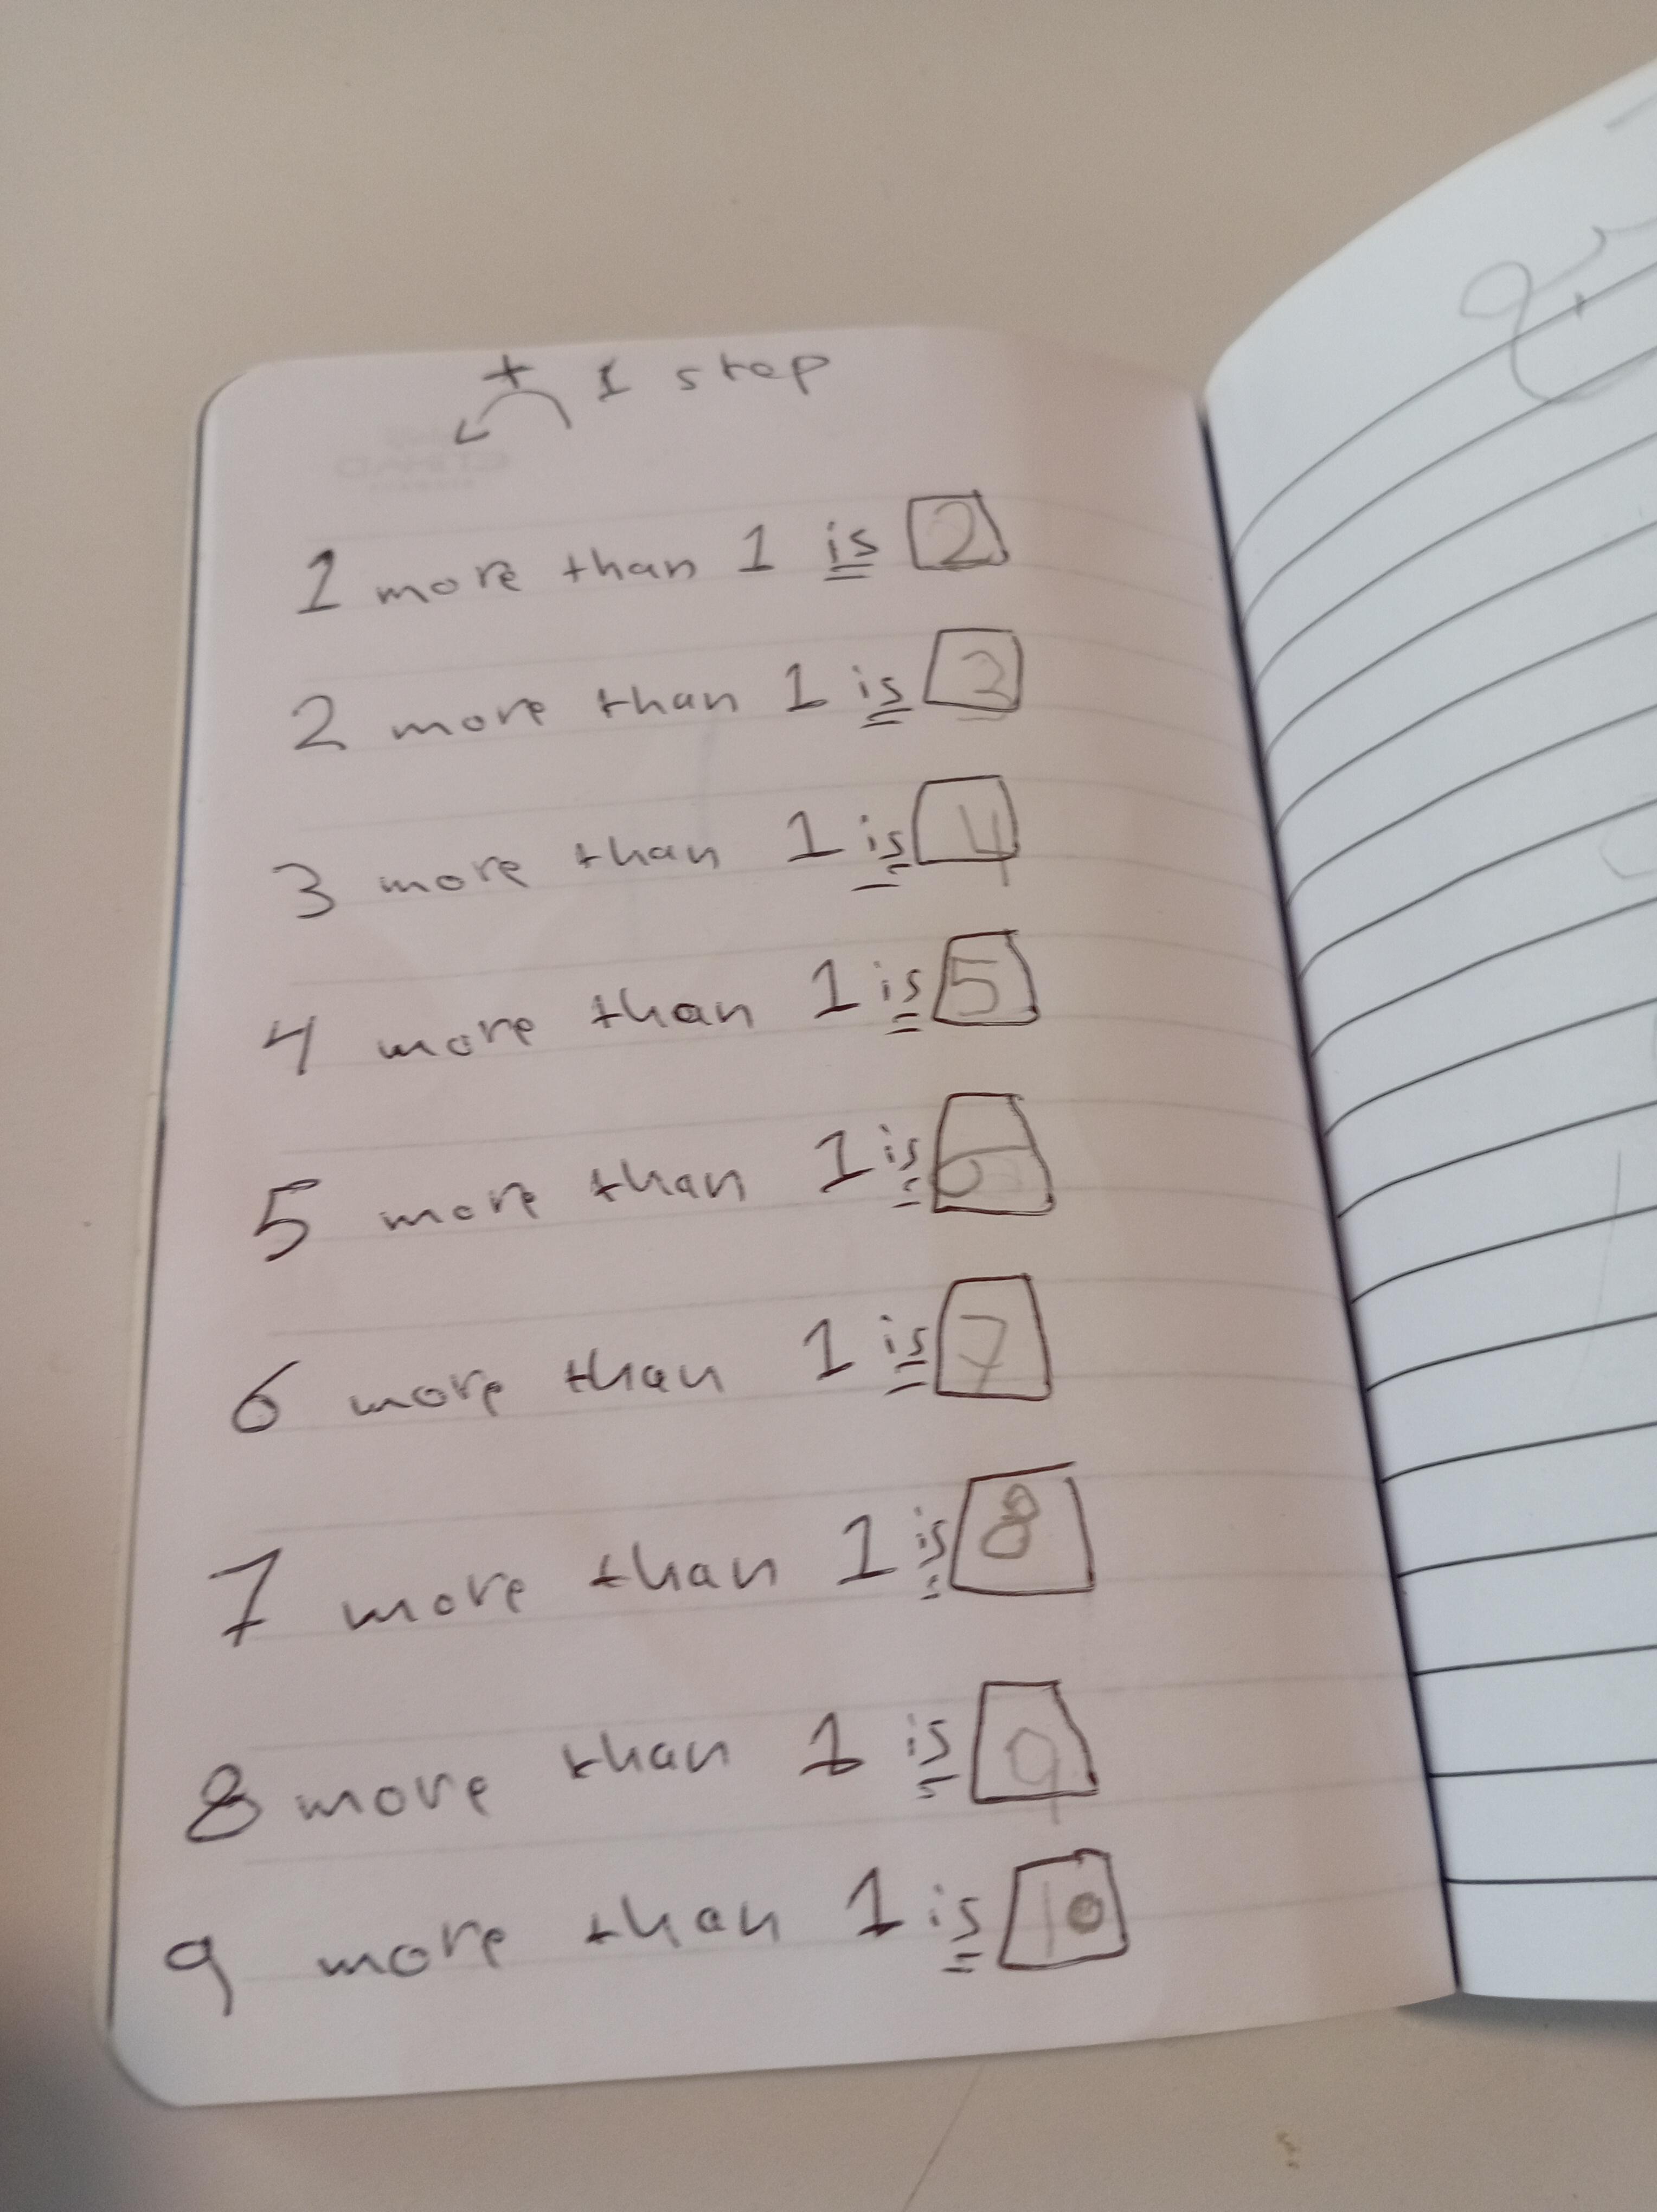 + 1 step
1 more than 1 is 2
2 more than 1 is 3
3 more than 1 is 4
4 more than 1 is 5
5 more than 1 is 6
6 more than 1 is 7
7 more than 1 is 8
8 more than 1 is 9
9 more than 1 is 10